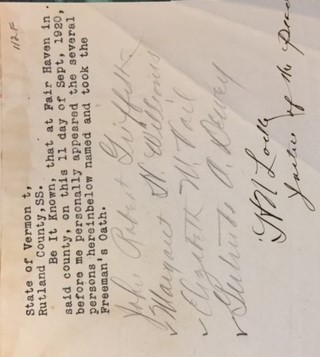 1128
State of Vermon t,
Rutland County,SS.
Be It Known, that at Fair Haven in
said county, on this 11 day of Sept, 1920,
before me personally appeared the several
persons hereinbelow named and took the
Freeman's Oath.
John Robert Griffith
✓ Margaret N. Williams
✓ Elizabeth W. Vail
✓ Gertrude A. Dewey
Justice of the Peace